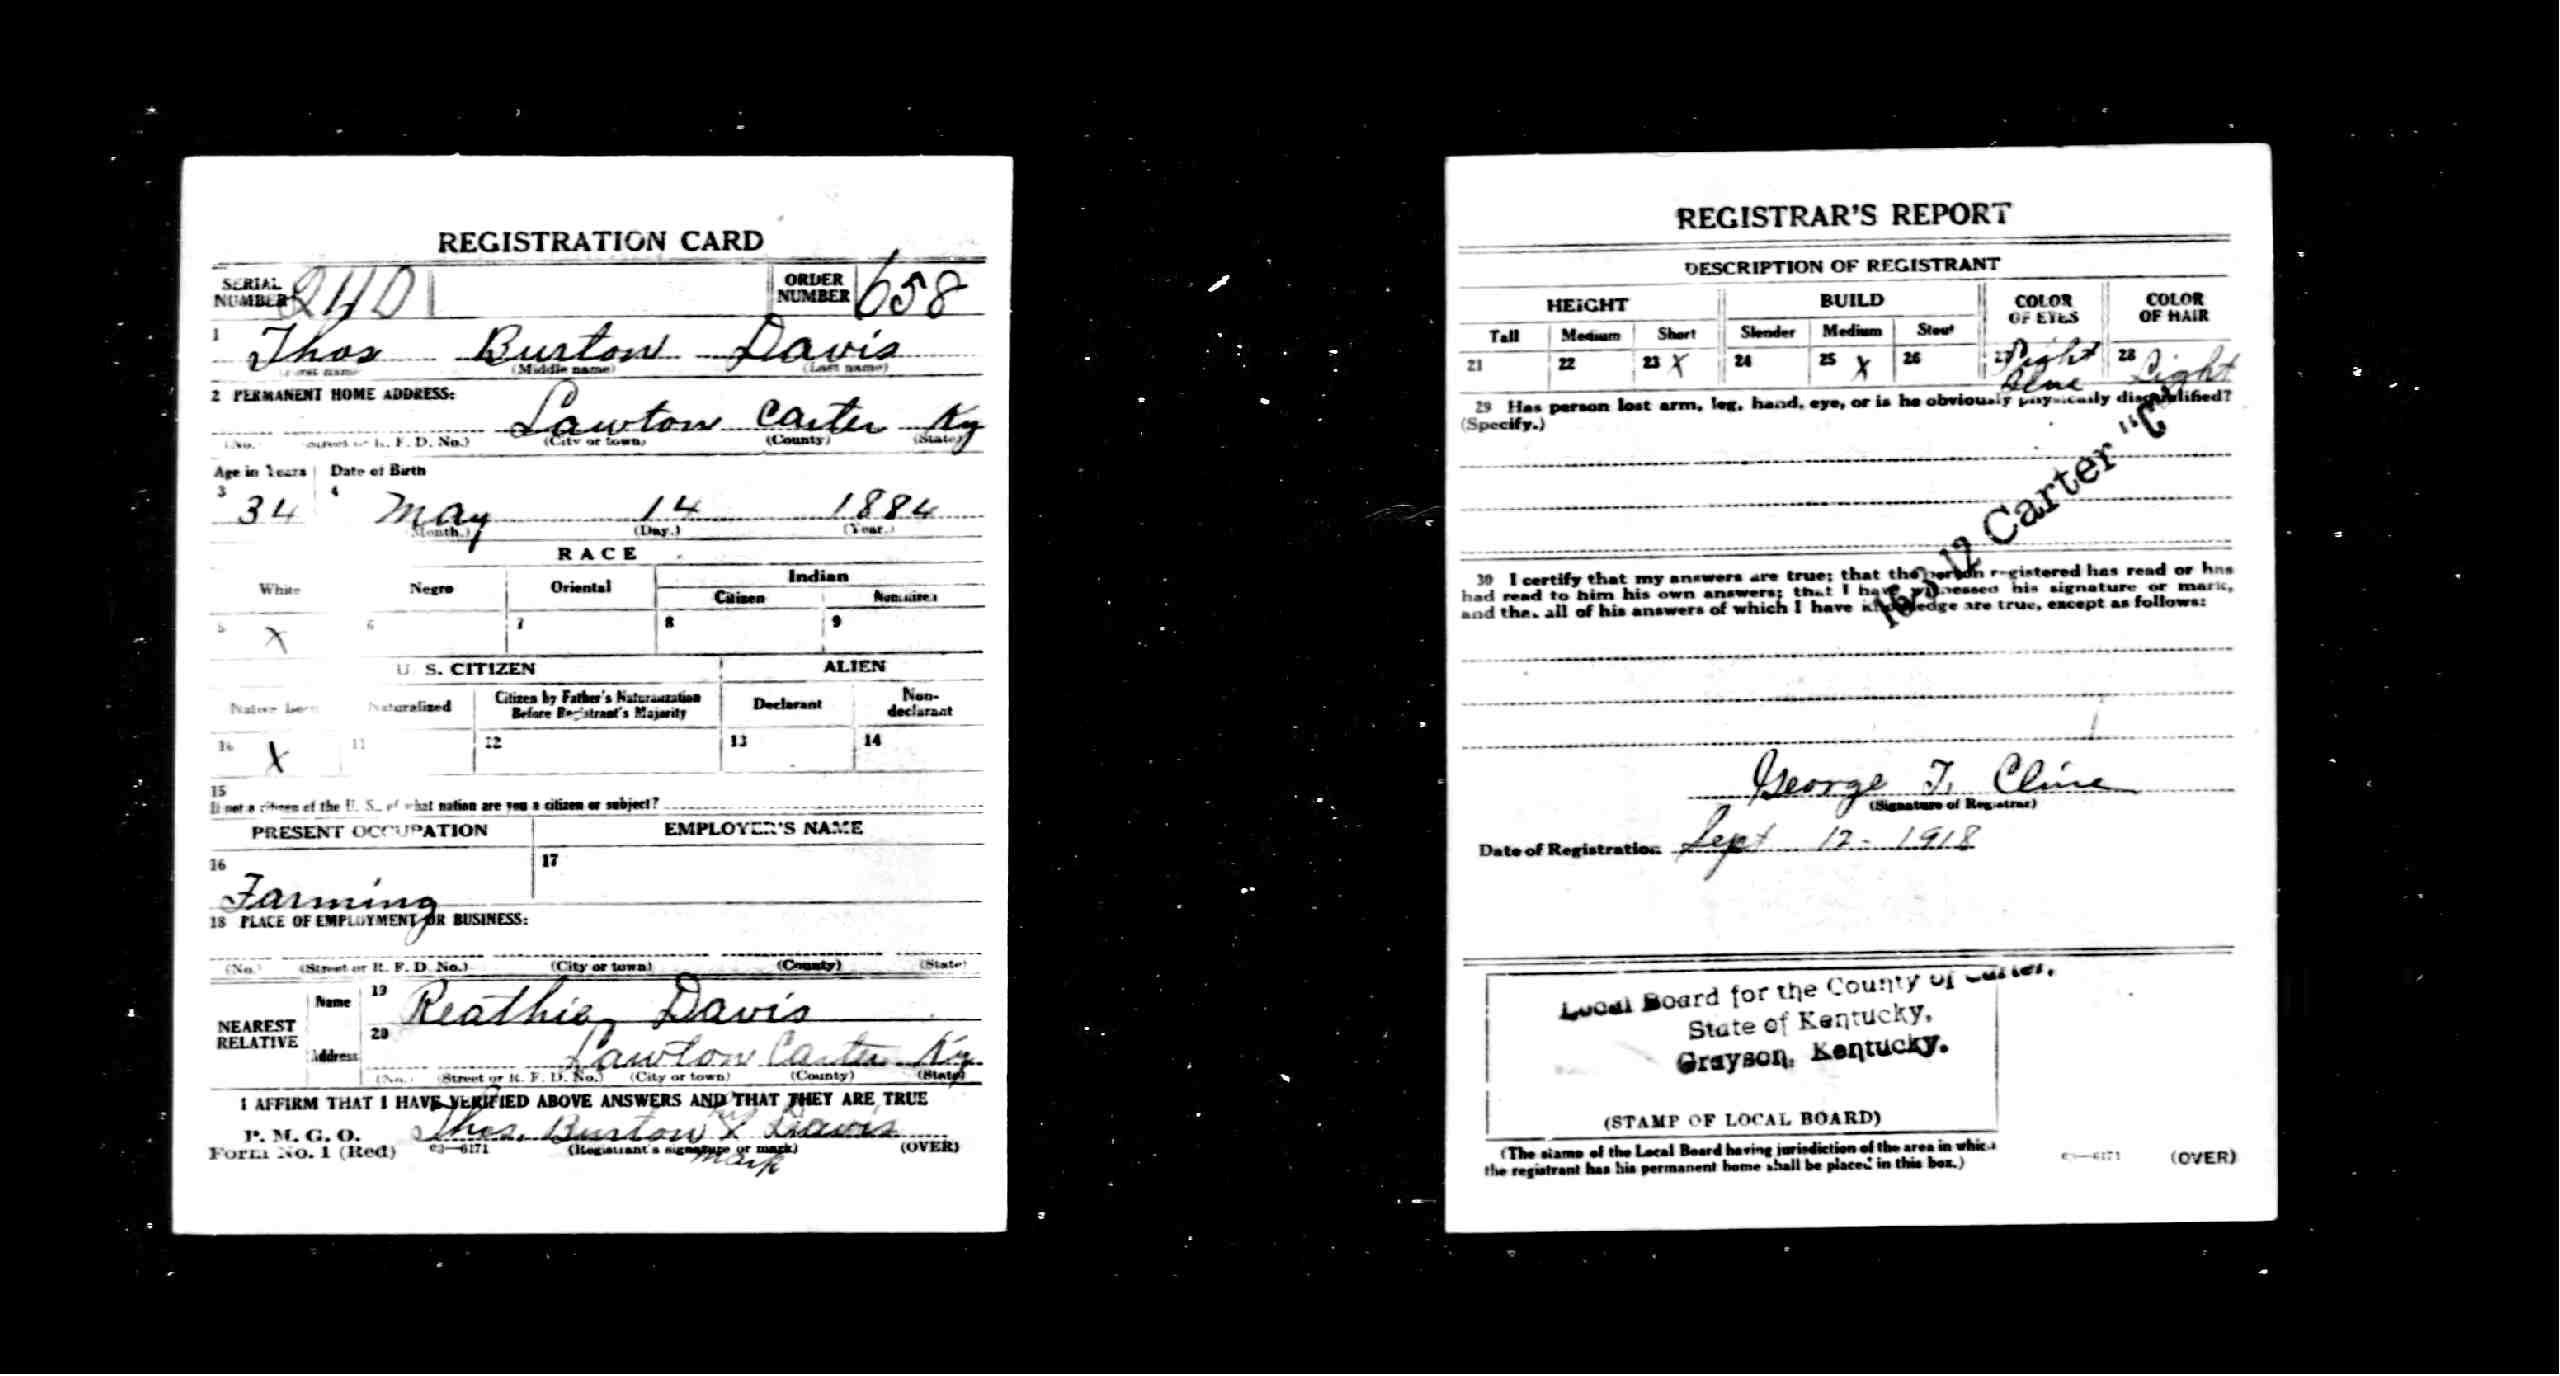 REGISTRATION CARD
SERIAL NUMBER 240 ORDER NUMBER 658
1 Thos Burton Davis
(First name) (Middle name) (Last name)
2 PERMANENT HOME ADDRESS:
Lawton Carter Ky
(No.) (Street or R. F. D. No.) (City or town) (County) (State)
Age in Years Date of Birth
3 34 4 May 14 1884
(Month.) (Day.) (Year.)
RACE
White Negro Oriental Indian
Citizen Noncitizen
5 X 6 7 8 9
U. S. CITIZEN ALIEN
Native born Naturalized Citizen by Father's Naturalization Before Registrant's Majority Declarant Non-declarant
10 X 11 12 13 14
15
If not a citizen of the U. S., of what nation are you a citizen or subject?
PRESENT OCCUPATION EMPLOYER'S NAME
16 17
Farming
18 PLACE OF EMPLOYMENT OR BUSINESS:
(No.) (Street or R. F. D. No.) (City or town) (County) (State)
NEAREST RELATIVE Name 19 Reathie Davis
Address 20 Lawton Carter Ky
(No.) (Street or R. F. D. No.) (City or town) (County) (State)
I AFFIRM THAT I HAVE VERIFIED ABOVE ANSWERS AND THAT THEY ARE TRUE
P. M. G. O.
Form No. 1 (Red) 03—6171 Thos. Burton his X mark Davis
(Registrant's signature or mark) (OVER)
REGISTRAR'S REPORT
DESCRIPTION OF REGISTRANT
HEIGHT BUILD COLOR OF EYES COLOR OF HAIR
Tall Medium Short Slender Medium Stout
21 22 23 X 24 25 X 26 27 Light Blue 28 Light
29 Has person lost arm, leg, hand, eye, or is he obviously physically disqualified?
(Specify.)
16-3-12 Carter "C"
30 I certify that my answers are true; that the person registered has read or has
had read to him his own answers; that I have witnessed his signature or mark,
and that all of his answers of which I have knowledge are true, except as follows:
George T. Cline
(Signature of Registrar)
Date of Registration Sept 12 - 1918
Local Board for the County of Carter,
State of Kentucky,
Grayson, Kentucky.
(STAMP OF LOCAL BOARD)
(The stamp of the Local Board having jurisdiction of the area in which
the registrant has his permanent home shall be placed in this box.)
03—6171 (OVER)